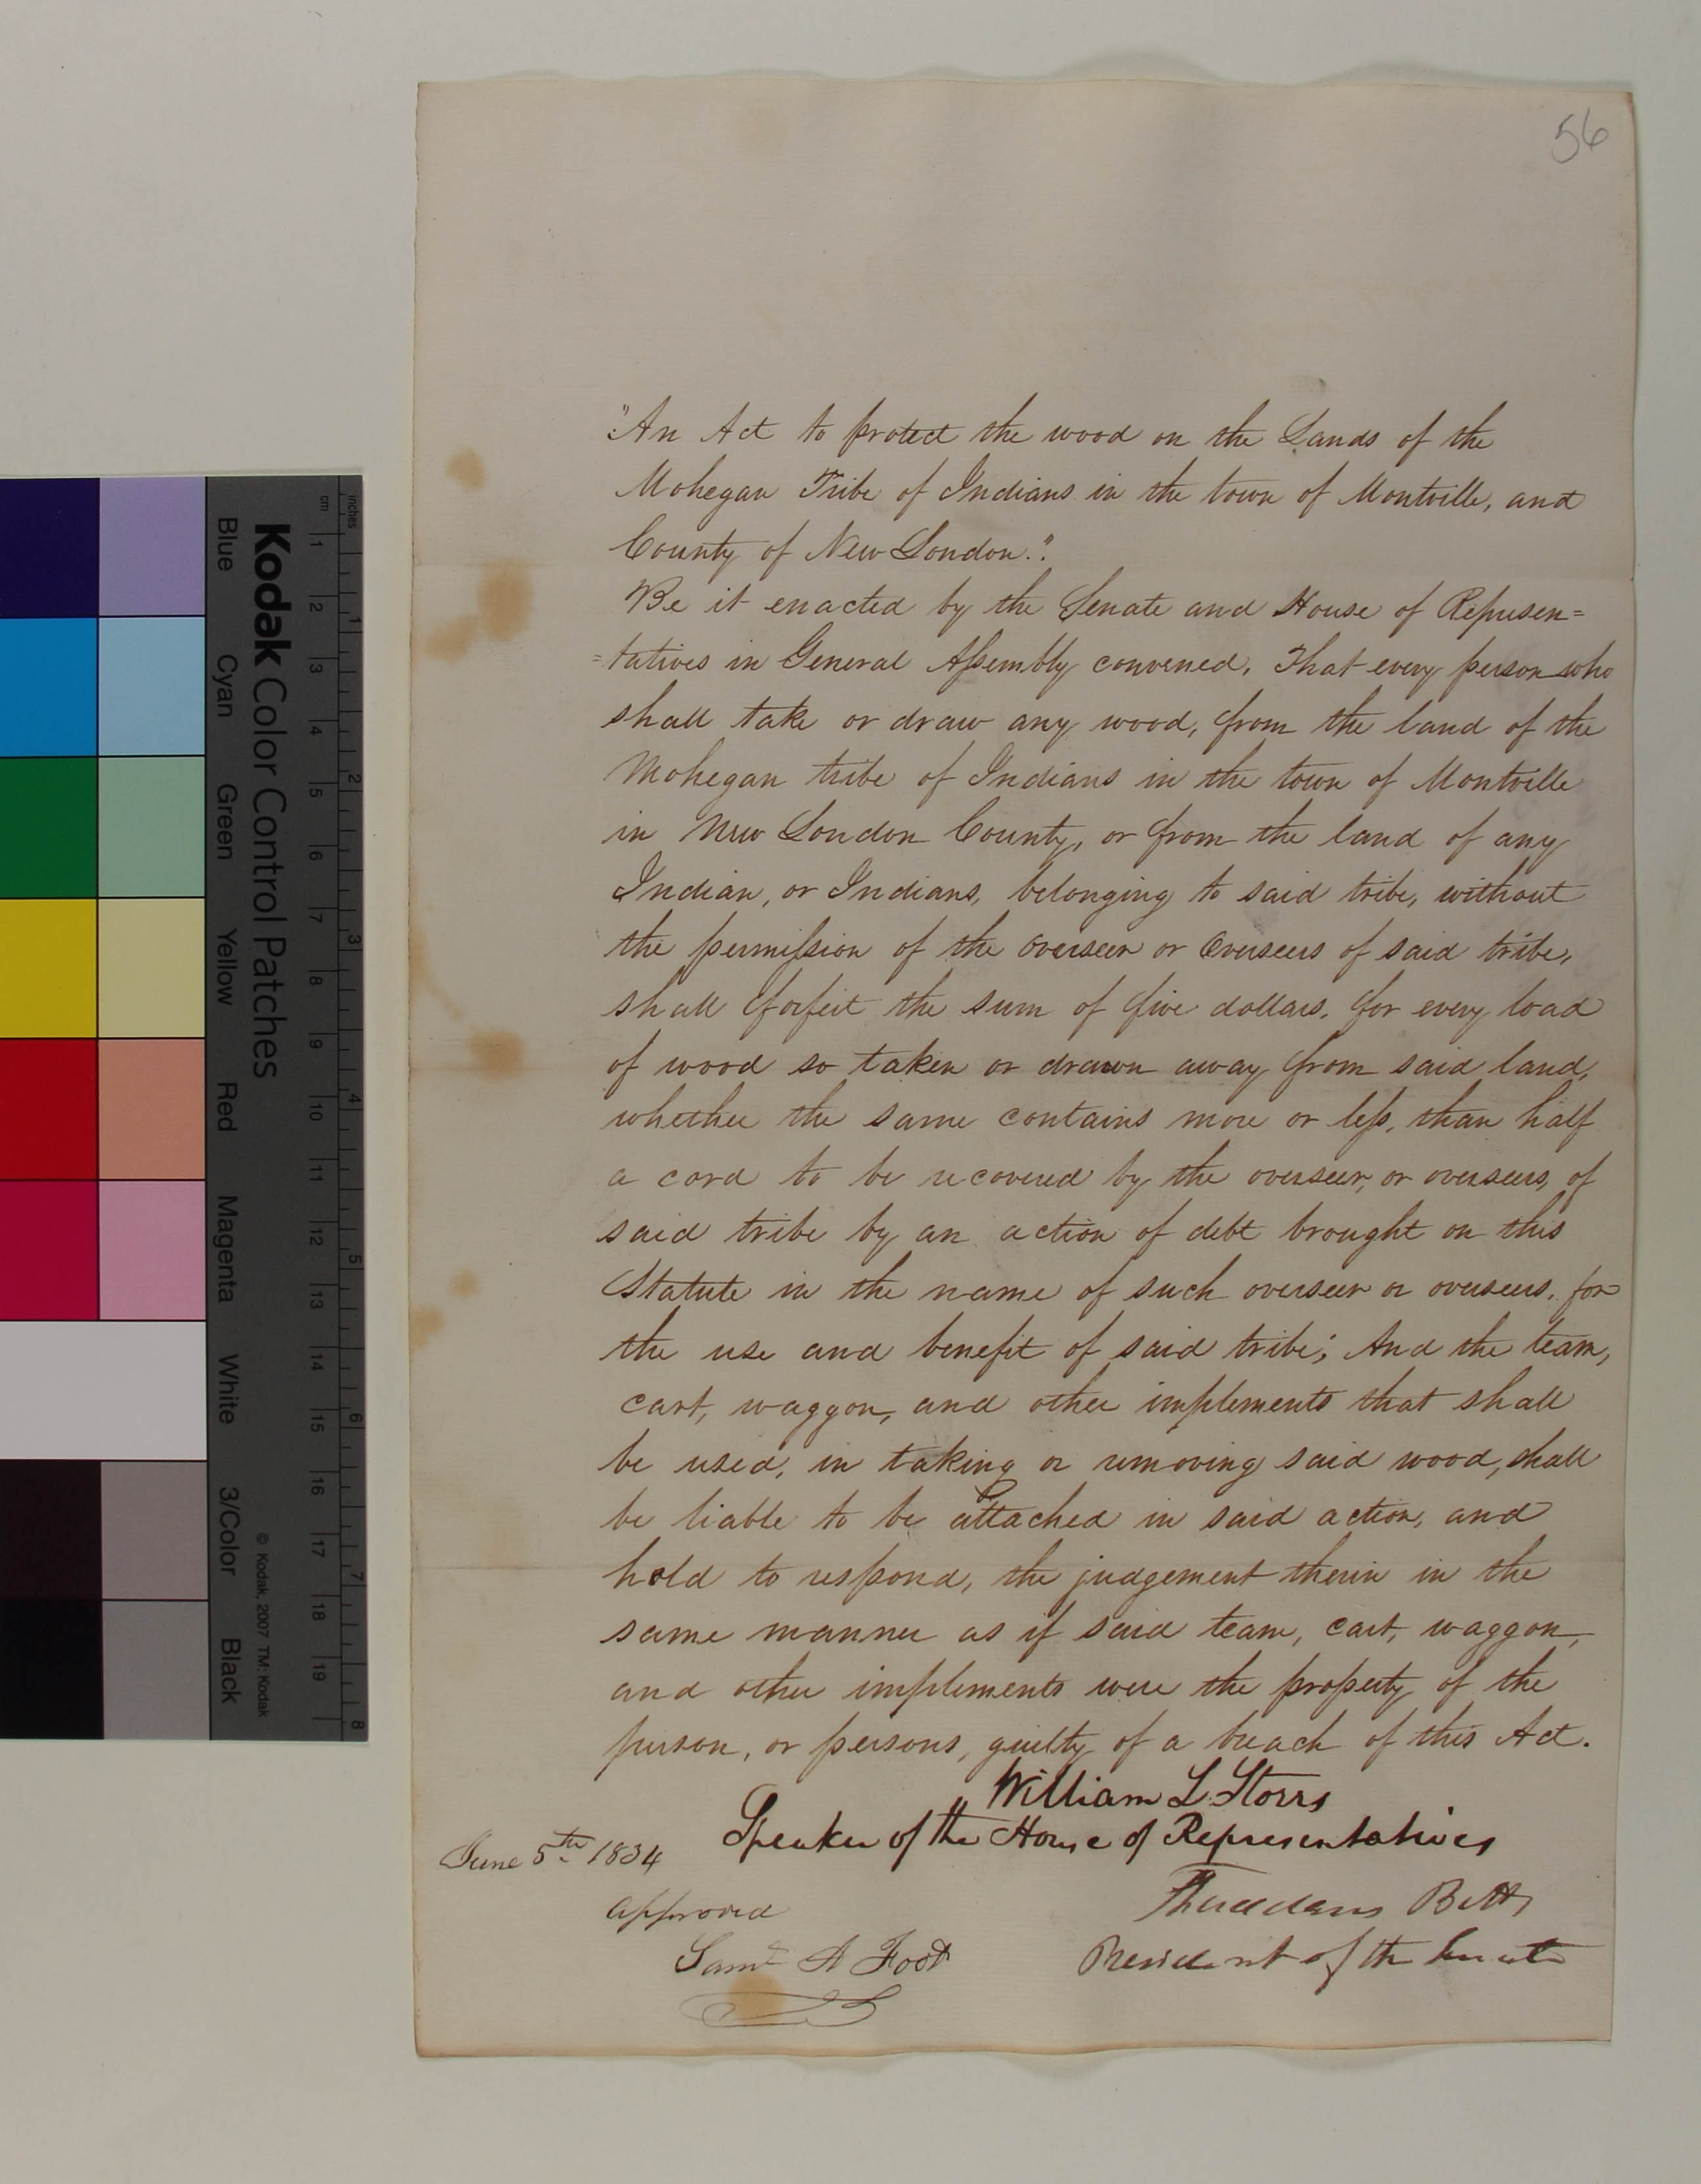 56
"An Act to protect the wood on the Lands of the
Mohegan Tribe of Indians in the town of Montville, and
County of New London."
Be it enacted by the Senate and House of Represen=
=tatives in General Assembly convened, That every person who
shall take or draw any wood, from the land of the
Mohegan tribe of Indians in the town of Montville
in New London County, or from the land of any
Indian, or Indians, belonging to said tribe, without
the permission of the overseer or Overseers of said tribe,
shall forfeit the sum of five dollars, for every load
of wood so taken or drawn away from said land,
whether the same contains more or less, than half
a cord to be recovered by the overseer, or overseers, of
said tribe by an action of debt brought on this
Statute in the name of such overseer or overseers, for
the use and benefit of said tribe; And the team,
cart, waggon, and other implements that shall
be used, in taking or removing said wood, shall
be liable to be attached in said action, and
hold to respond, the judgement therin in the
same manner as if said team, cart, waggon,
and other implements were the property of the
person, or persons, guilty of a breach of this Act.
William L. Storrs
Speaker of the House of Representatives
June 5th 1834
Thaddeus Betts
approved
President of the Senate
Saml A Foot
Kodak Color Control Patches
Blue Cyan Green Yellow Red Magenta White 3/Color Black
© Kodak, 2007 TM: Kodak
inches 1 2 3 4 5 6 7 8
cm 1 2 3 4 5 6 7 8 9 10 11 12 13 14 15 16 17 18 19